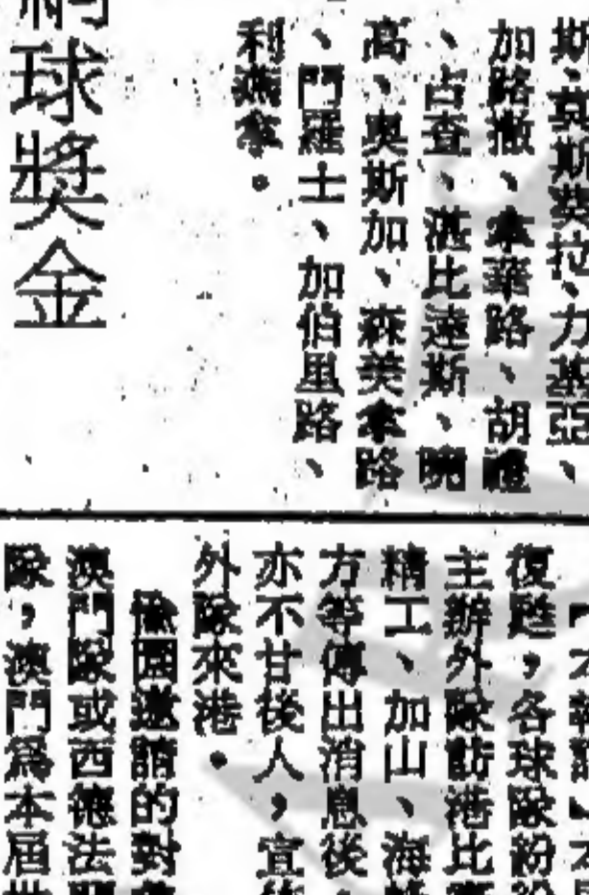 斯、莫斯英拉、力基亞、
加路撤、拿華路、胡禮
、占查、湛比達斯、曉
高、奥斯加、森美拿路
、門羅士、加伯里路、
利爾拿。
網球獎金
【本報訊】本
復甦，各球隊紛
主辦外隊訪港比賽
精工、加山、海
方等傳出消息後，
亦不甘後人，宣
外隊來港。
邀請的對
澳門隊或西德法
隊，澳門爲本屆世